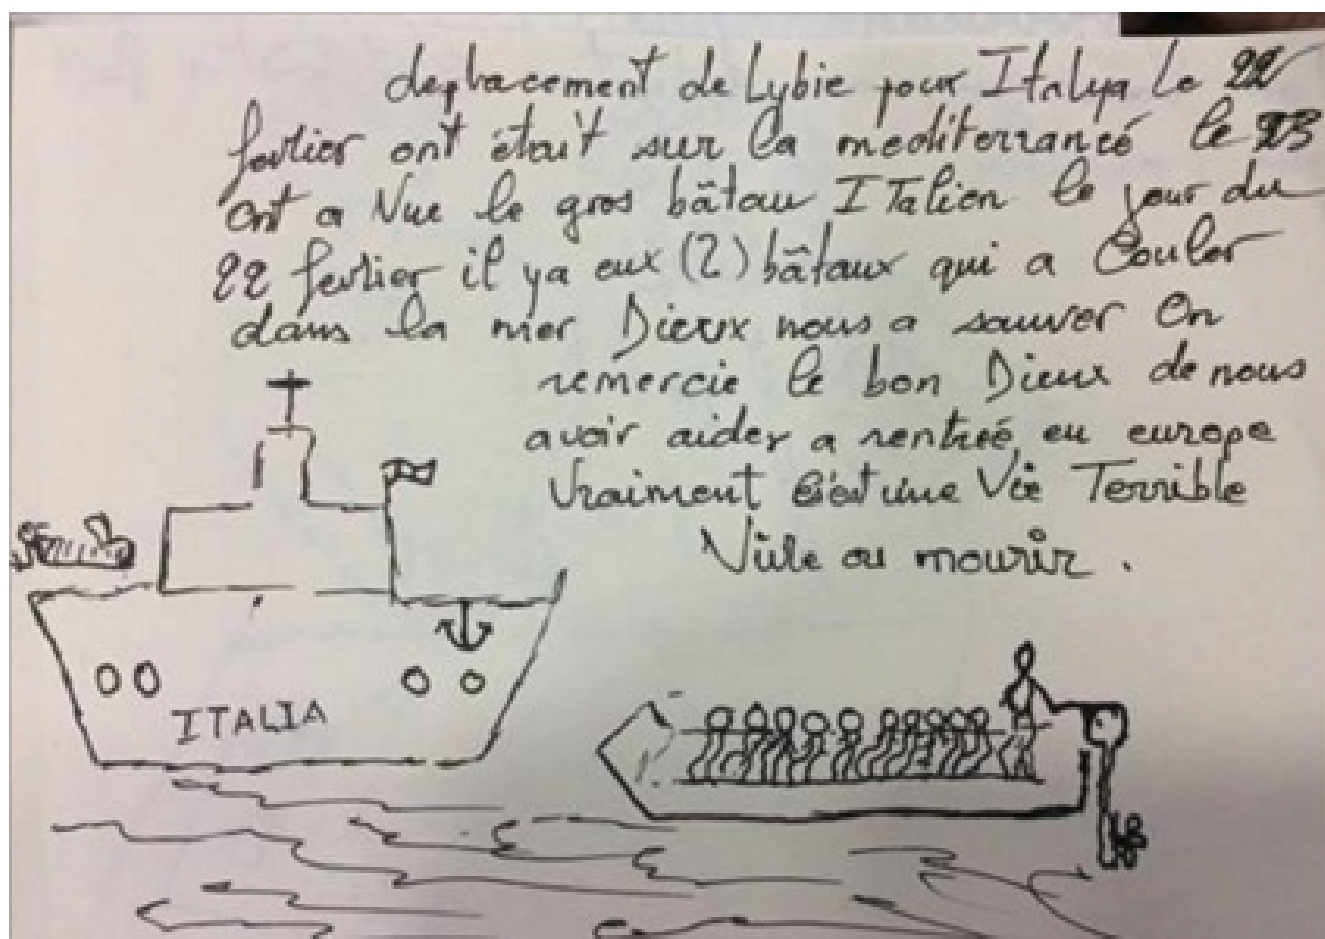 deplacement de Lybie pour Italya le 22
fevrier ont était sur la mediterrancé le 23
ont a Vue le gros bâtau ITalien le jour du
22 fevrier il ya eux (2) bâtaux qui a Couler
dans la mer Dieux nous a sauver On
remercie le bon Dieux de nous
avoir aider a rentreé eu europe
Vraiment c'est une Vie Terrible
ou mourir .
ITALIA